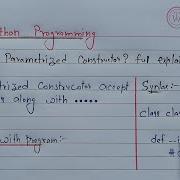 thon Programming
Parametrized Constructor? full explain
trized Constructor accept
along with .....
Syntax:-
class clas
with program:-
def --i
#